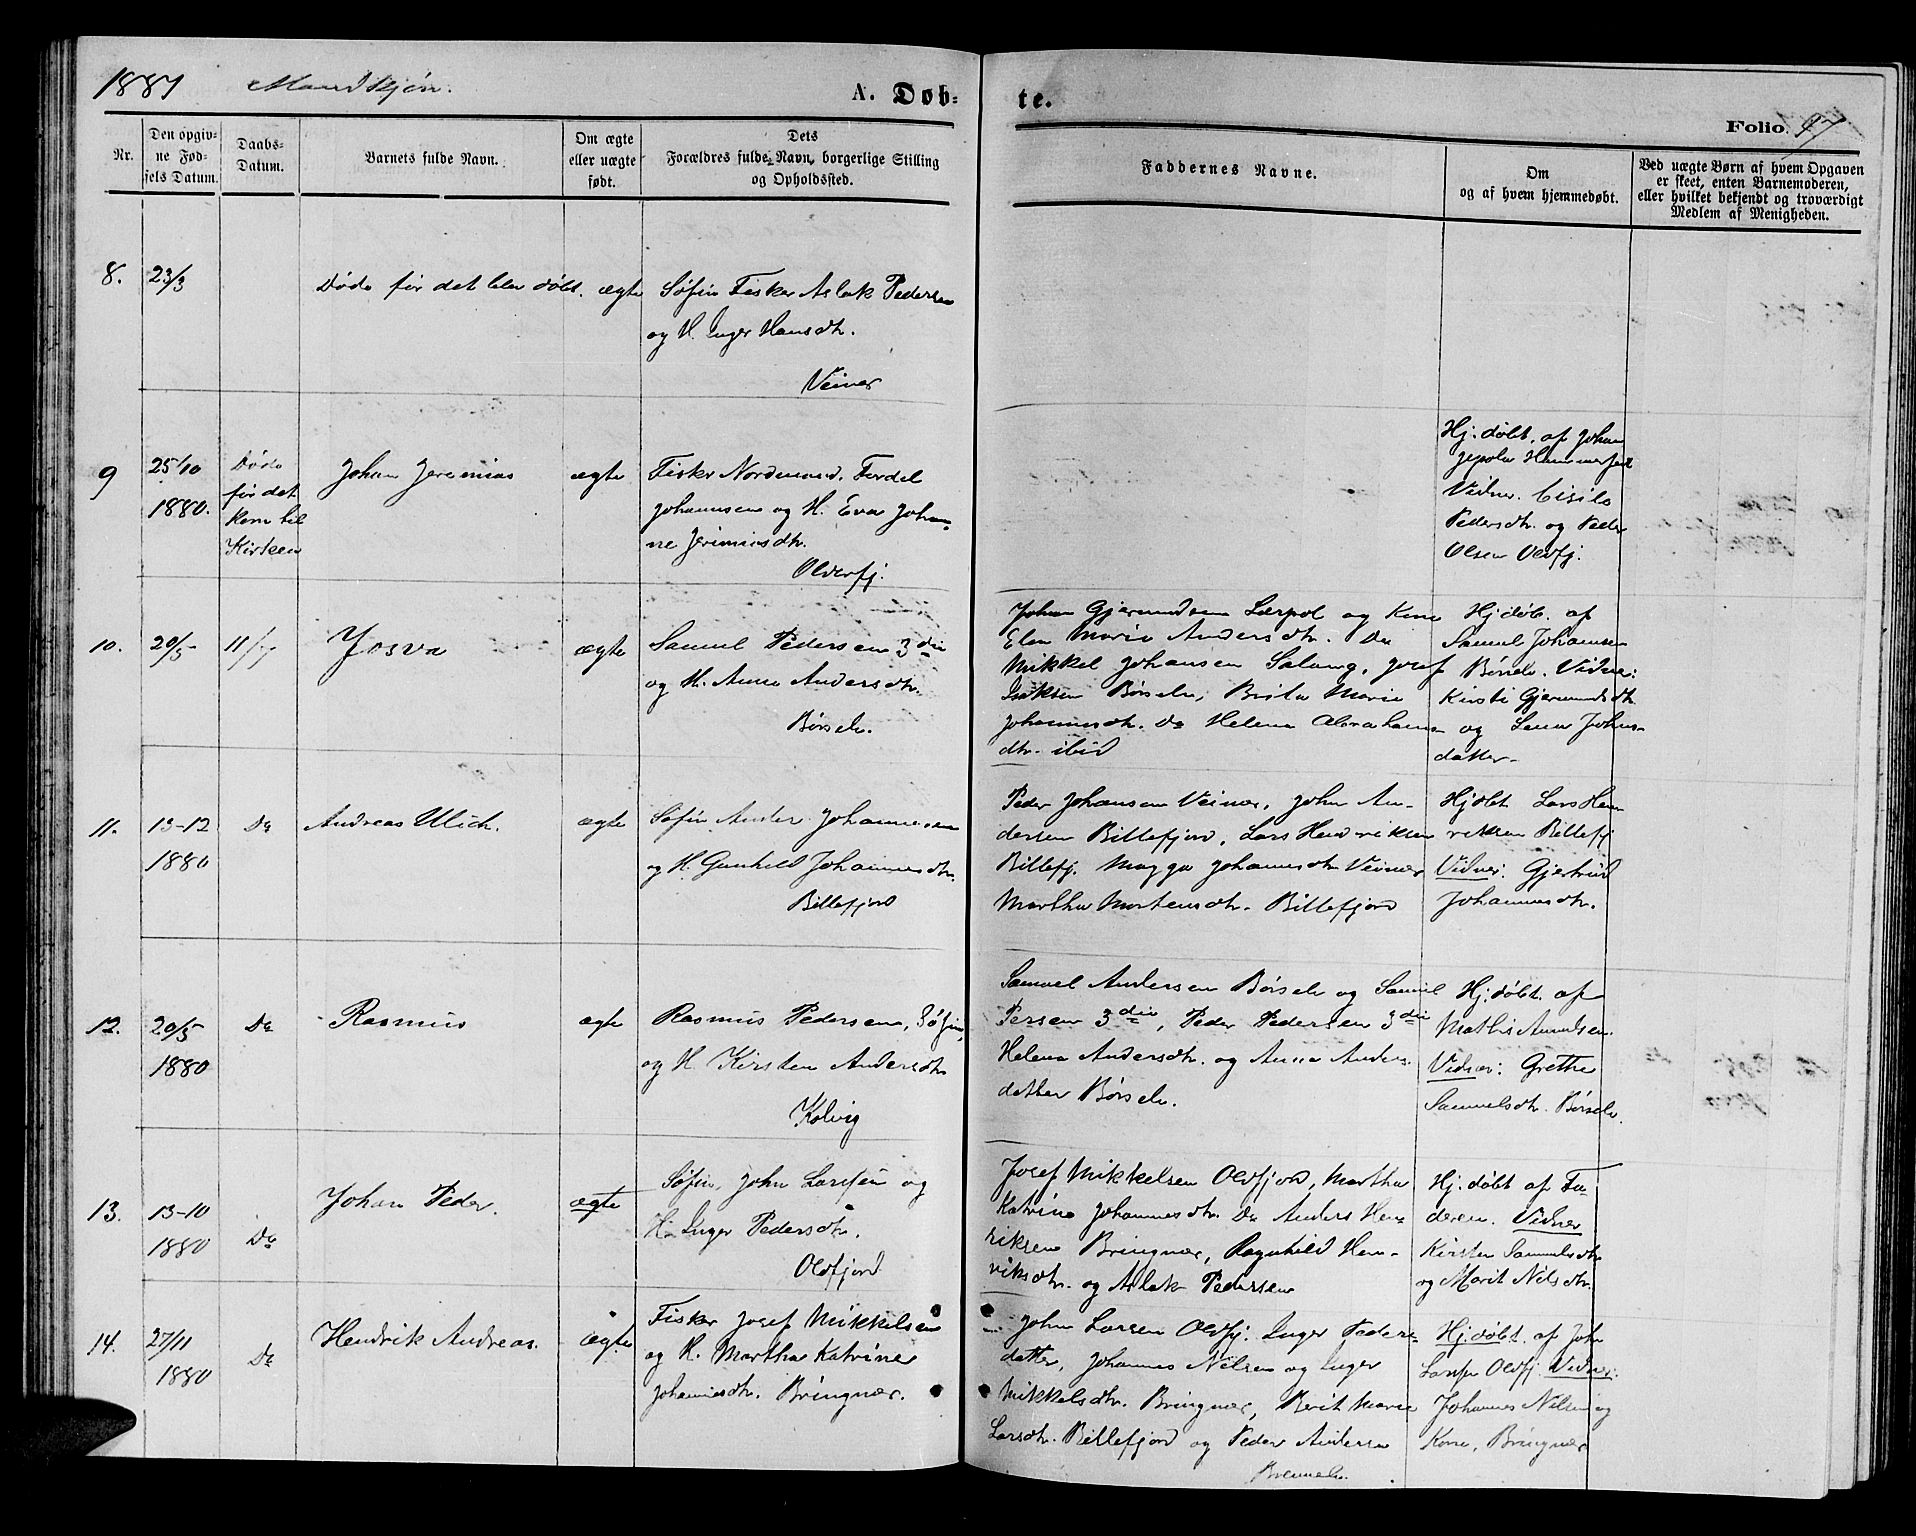 1881 Mandkjøn.
A. Døb-
te.
Folio. 47
Nr.
Den opgiv-
ne Fød-
sels Datum.
Daabs-
Datum.
Barnets fulde Navn.
Om ægte
eller uægte
født.
Dets
Forældres fulde Navn, borgerlige Stilling
og Opholdssted.
Faddernes Navne.
Om
og af hvem hjemmedøbt.
Ved uægte Børn af hvem Opgaven
er skeet, enten Barnemoderen,
eller hvilket bekjendt og troværdigt
Medlem af Menigheden.
8. 23/3 Døde før det blev døbt. ægte
Søfin Fisker Aslak Pedersen
og H. Inger Hansdtr.
Veines
9 25/10
1880.
Døde
før det
kom til
Kirken
Johan Jeremias
ægte
Fisker Nordmand. Ferdel
Johannsen og H. Eva Johan-
ne Jerimiasdtr.
Olderfj.
Hj. døbt. af Johan
Hammerfest
Vidner. Cisile
Pedersdtr. og Peder
Olsen Oldfj.
10. 20/5 11/7 Josva ægte
Samuel Pedersen 3die
og H. Anna Andersdtr.
Børselv.
Johan Gjermundsen Lærpol og Kone
Elen Maria Andersdtr. Da
Mikkel Johansen Josef
Isaksen Børselv, Brita Maria
Johannesdtr. Da Helena Abrahams-
dtr. ibid
Hj. døb. af
Samuel Johansen
Børselv. Vidner:
Kirsti Gjermundsdtr.
og Johns-
datter.
11. 13-12
1880
Do
Andreas Ulich.
ægte
Søfin Anders Johannesen
og H. Gunhild Johannesdtr.
Billefjord
Peder Johansen Veines, John An-
dersen Billefjord, Lars Hendriksen
Billefj. Magga Johannesdtr Veines
Martha Mortensdtr. Billefjord
Hj døbt Lars Hen
riksen Billefj
Vidner: Gjertrud
Johannesdtr.
12. 20/5
1880
Do
Rasmus
ægte
Rasmus Pedersen, Søfin,
og H. Kirsten Andersdtr.
Kolvig
Samuel Andersen Børselv og Samuel
Persen 3die, Peder Pedersen 3die
Helena Andersdtr. og Anna Anders-
datter Børselv.
Hj. døbt. af
Mathis Amundsen.
Vidner: Grethe
Samuelsdtr. Børselv.
13. 13-10
1880
Do
Johan Peder.
ægte
Søfin, John Larsen og
H. Inger Pedersdtr.
Oldfjord
Josef Mikkelsen Oldfjord, Martha
Katrine Johannesdtr. Do Anders Hen
riksen Bringnær, Ragnhild Hen-
riksdtr. og Aslak Pedersen
Hj. døbt af Fa-
deren. Vidner
Kirsten Samuelsdtr
og Marit Nilsdtr.
14. 27/11
1880
Do
Hendrik Andreas.
ægte
Fisker Josef Mikkelsen
og H. Martha Katrine
Johannesdtr. Bringnær.
John Larsen Oldfj. Inger Peders-
datter, Johannes Nilsen og Inger
Mikkelsdtr. Bringnær, Berit Marie
Larsdtr. Billefjord og Peder Andersen
Brennelv.
Hj. døbt. af John
Larsen Oldfj. Vidner:
Johannes Nilsen og
Kone, Bringnær